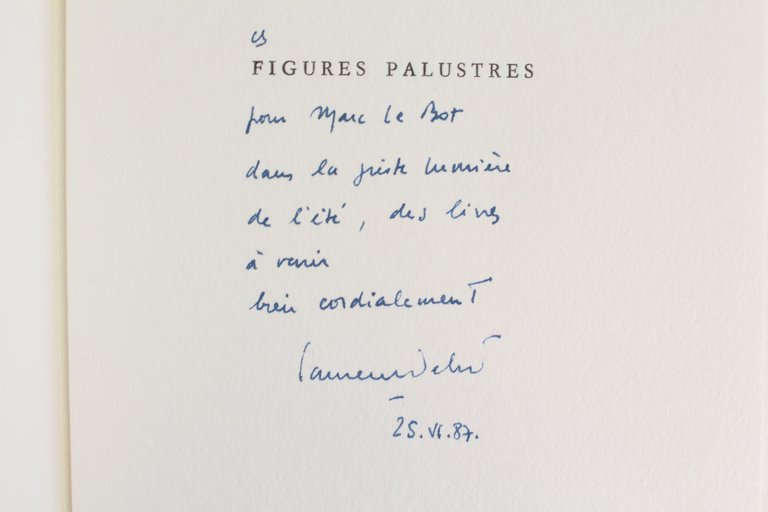 ces
FIGURES PALUSTRES
pour Marc Le Bot
dans la juste lumière
de l'été, des livres
à venir
bien cordialement
25.VI.87.